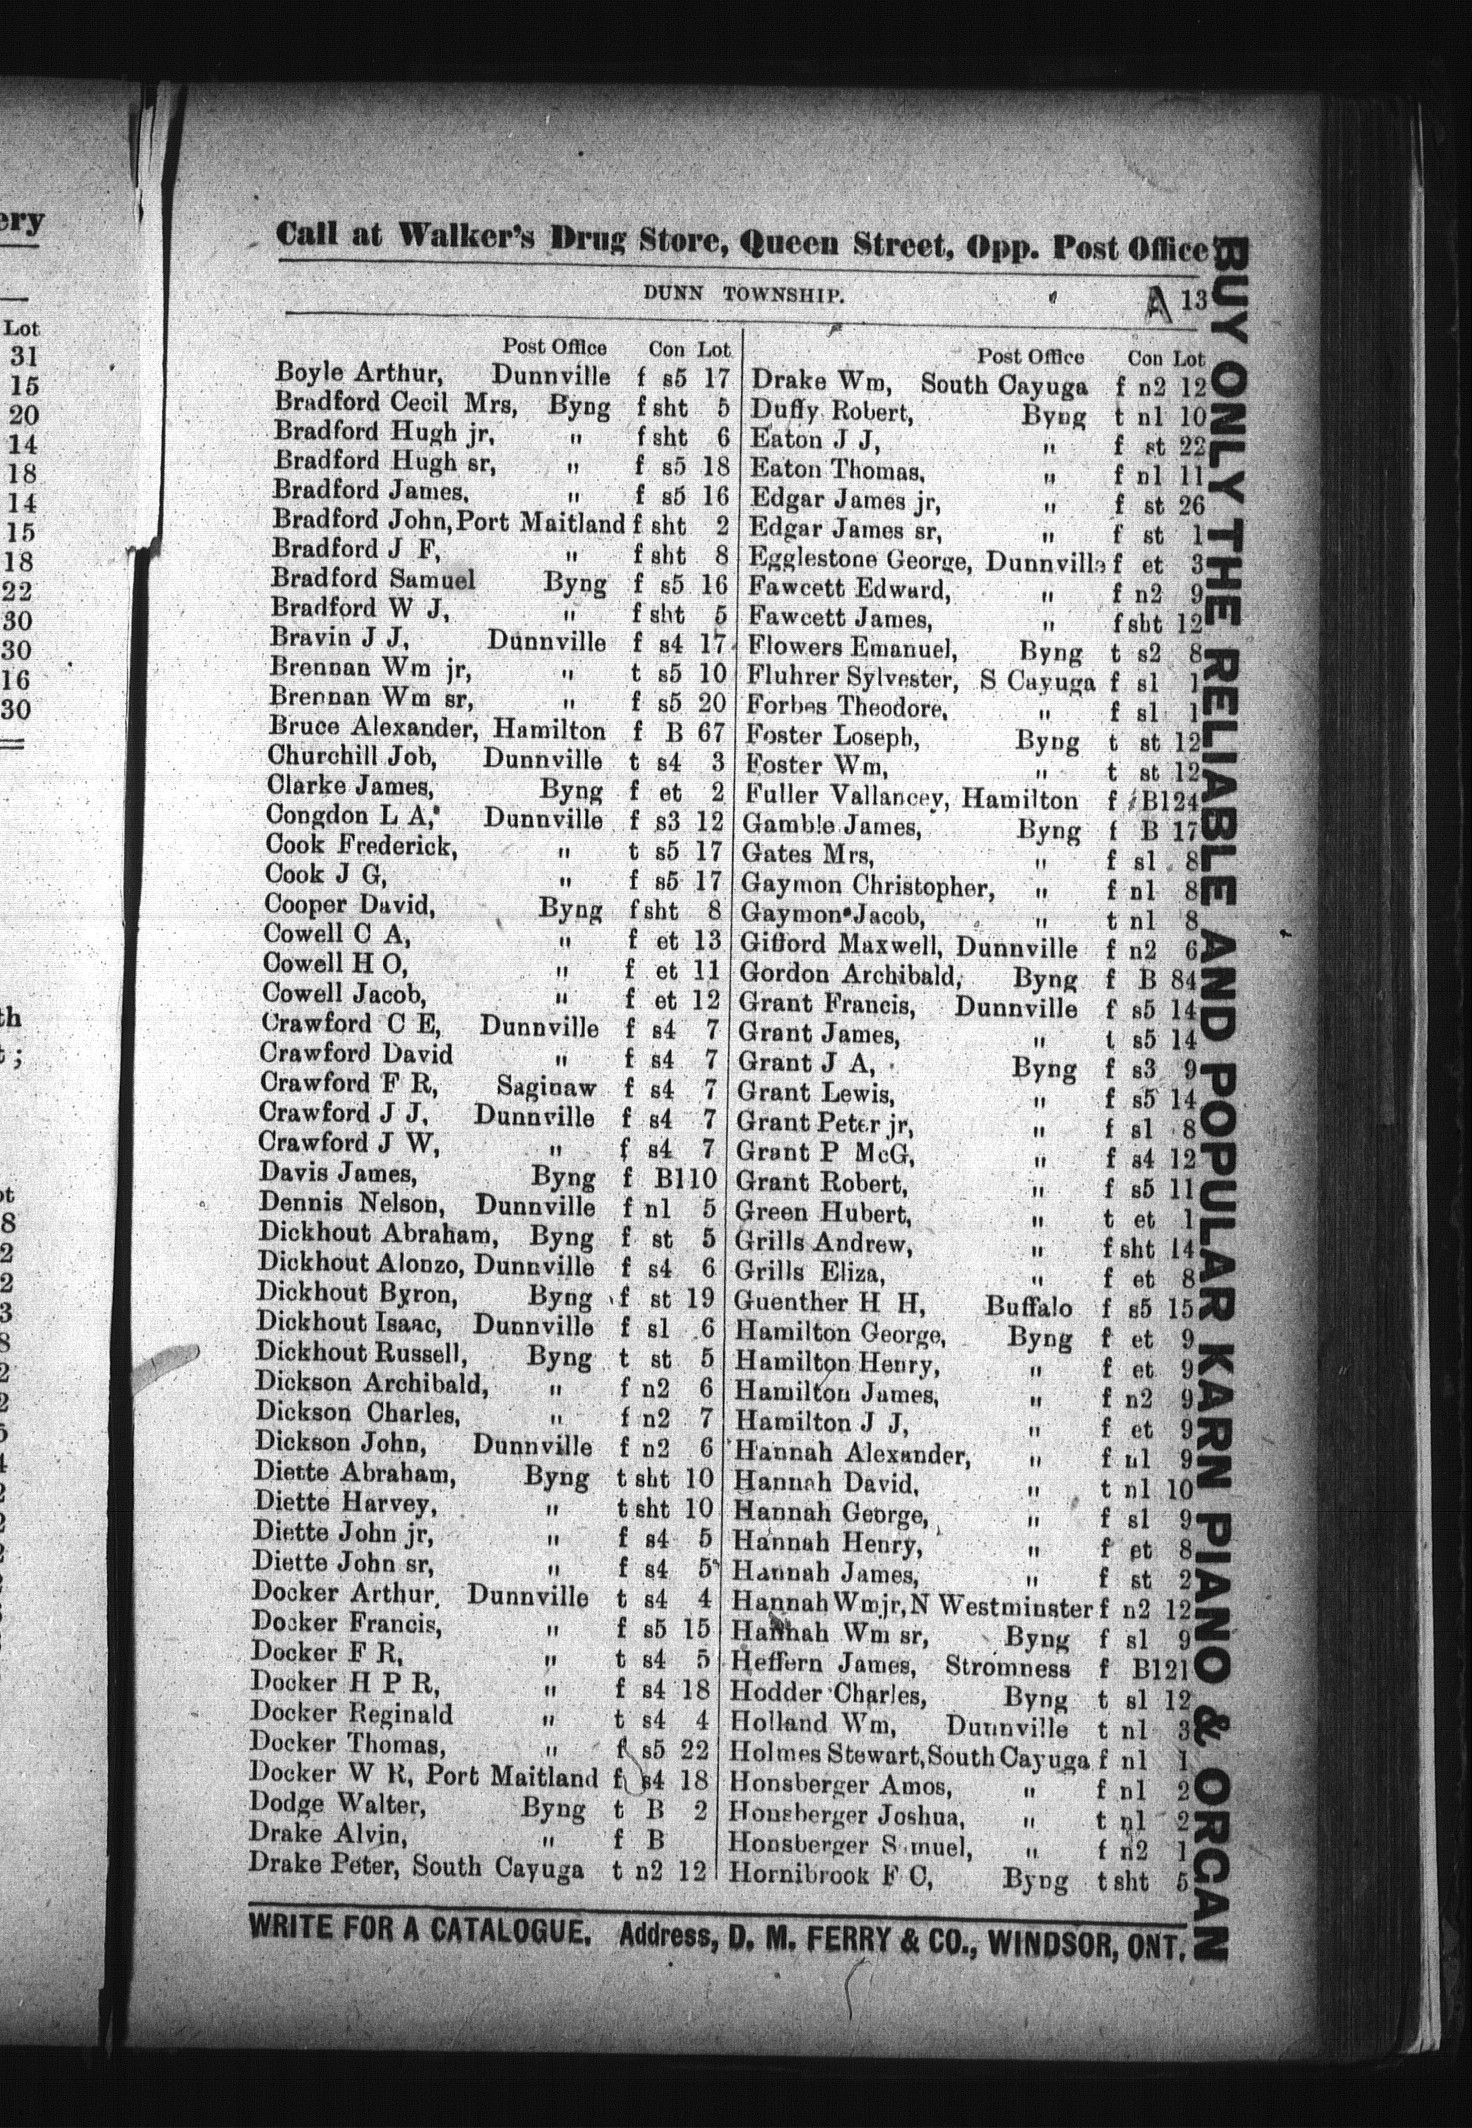 ery
Lot
31
15
20
14
18
14
15
18
22
30
30
16
30
th
t ;
ot
8
2
2
3
8
2
2
5
4
2
2
Call at Walker's Drug Store, Queen Street, Opp. Post Office
DUNN TOWNSHIP.
A 13
Post Office Con Lot
Boyle Arthur, Dunnville f s5 17
Bradford Cecil Mrs, Byng f sht 5
Bradford Hugh jr, " f sht 6
Bradford Hugh sr, " f s5 18
Bradford James, " f s5 16
Bradford John, Port Maitland f sht 2
Bradford J F, " f sht 8
Bradford Samuel Byng f s5 16
Bradford W J, " f sht 5
Bravin J J, Dunnville f s4 17
Brennan Wm jr, " t s5 10
Brennan Wm sr, " f s5 20
Bruce Alexander, Hamilton f B 67
Churchill Job, Dunnville t s4 3
Clarke James, Byng f et 2
Congdon L A, Dunnville f s3 12
Cook Frederick, " t s5 17
Cook J G, " f s5 17
Cooper David, Byng f sht 8
Cowell C A, " f et 13
Cowell H O, " f et 11
Cowell Jacob, " f et 12
Crawford C E, Dunnville f s4 7
Crawford David " f s4 7
Crawford F R, Saginaw f s4 7
Crawford J J, Dunnville f s4 7
Crawford J W, " f s4 7
Davis James, Byng f B110
Dennis Nelson, Dunnville f n1 5
Dickhout Abraham, Byng f st 5
Dickhout Alonzo, Dunnville f s4 6
Dickhout Byron, Byng f st 19
Dickhout Isaac, Dunnville f s1 6
Dickhout Russell, Byng t st 5
Dickson Archibald, " f n2 6
Dickson Charles, " f n2 7
Dickson John, Dunnville f n2 6
Diette Abraham, Byng t sht 10
Diette Harvey, " t sht 10
Diette John jr, " f s4 5
Diette John sr, " f s4 5
Docker Arthur, Dunnville t s4 4
Docker Francis, " f s5 15
Docker F R, " t s4 5
Docker H P R, " f s4 18
Docker Reginald " t s4 4
Docker Thomas, " f s5 22
Docker W R, Port Maitland f s4 18
Dodge Walter, Byng t B 2
Drake Alvin, " f B
Drake Peter, South Cayuga t n2 12
Post Office Con Lot
Drake Wm, South Cayuga f n2 12
Duffy Robert, Byng t n1 10
Eaton J J, " f st 22
Eaton Thomas, " f n1 11
Edgar James jr, " f st 26
Edgar James sr, " f st 1
Egglestone George, Dunnville f et 3
Fawcett Edward, " f n2 9
Fawcett James, " f sht 12
Flowers Emanuel, Byng t s2 8
Fluhrer Sylvester, S Cayuga f s1 1
Forbes Theodore, " f s1 1
Foster Loseph, Byng t st 12
Foster Wm, " t st 12
Fuller Vallancey, Hamilton f B124
Gamble James, Byng f B 17
Gates Mrs, " f s1 8
Gaymon Christopher, " f n1 8
Gaymon Jacob, " t n1 8
Gifford Maxwell, Dunnville f n2 6
Gordon Archibald, Byng f B 84
Grant Francis, Dunnville f s5 14
Grant James, " t s5 14
Grant J A, Byng f s3 9
Grant Lewis, " f s5 14
Grant Peter jr, " f s1 8
Grant P McG, " f s4 12
Grant Robert, " f s5 11
Green Hubert, " t et 1
Grills Andrew, " f sht 14
Grills Eliza, " f et 8
Guenther H H, Buffalo f s5 15
Hamilton George, Byng f et 9
Hamilton Henry, " f et 9
Hamilton James, " f n2 9
Hamilton J J, " f et 9
Hannah Alexander, " f n1 9
Hannah David, " t n1 10
Hannah George, " f s1 9
Hannah Henry, " f et 8
Hannah James, " f st 2
Hannah Wm jr, N Westminster f n2 12
Hannah Wm sr, Byng f s1 9
Heffern James, Stromness f B121
Hodder Charles, Byng t s1 12
Holland Wm, Dunnville t n1 3
Holmes Stewart, South Cayuga f n1 1
Honsberger Amos, " f n1 2
Honsberger Joshua, " t n1 2
Honsberger S muel, " f n2 1
Hornibrook F C, Byng t sht 5
WRITE FOR A CATALOGUE. Address, D. M. FERRY & CO., WINDSOR, ONT.
BUY ONLY THE RELIABLE AND POPULAR KARN PIANO & ORGAN